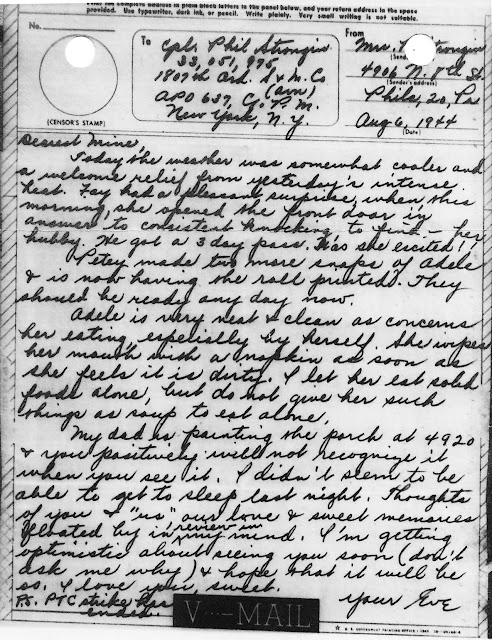 Print the complete address in plain block letters in the panel below, and your return address in the space
provided. Use typewriter, dark ink, or pencil. Write plainly. Very small writing is not suitable.
No.
To
From
Cpl. Phil Strongin
33,051,975
1807th Ord. S & M. Co
(avn)
APO 637, C/o P.M.
New York, N.Y.
Mrs. Strongin
(Sender's name)
4906 N. 8th St.
(Sender's address)
Phila, 20, Pa
Aug 6, 1944
(Date)
(CENSOR'S STAMP)
Dearest Mine,
Today the weather was somewhat cooler and
a welcome relief from yesterday's intense
heat. Fay had a pleasant surprise, when this
morning, she opened the front door in
answer to consistent knocking, to find - her
hubby. He got a 3 day pass. Was she excited!!
Petey made two more snaps of Adele
& is now having the roll printed. They
should be ready any day now.
Adele is very neat & clean as concerns
her eating, especially by herself. She wipes
her mouth with a napkin as soon as
she feels it is dirty. I let her eat solid
foods alone, but do not give her such
things as soup to eat alone.
My dad is painting the porch at 4920
& you positively will not recognize it
when you see it. I didn't seem to be
able to get to sleep last night. Thoughts
of you & "us" our love & sweet memories
floated by in review in my mind. I'm getting
optimistic about seeing you soon (don't
ask me why) & hope that it will be
so. I love you, sweet.
Your Eve
P.S. PTC strike has
ended.
V···—MAIL
U. S. GOVERNMENT PRINTING OFFICE : 1943